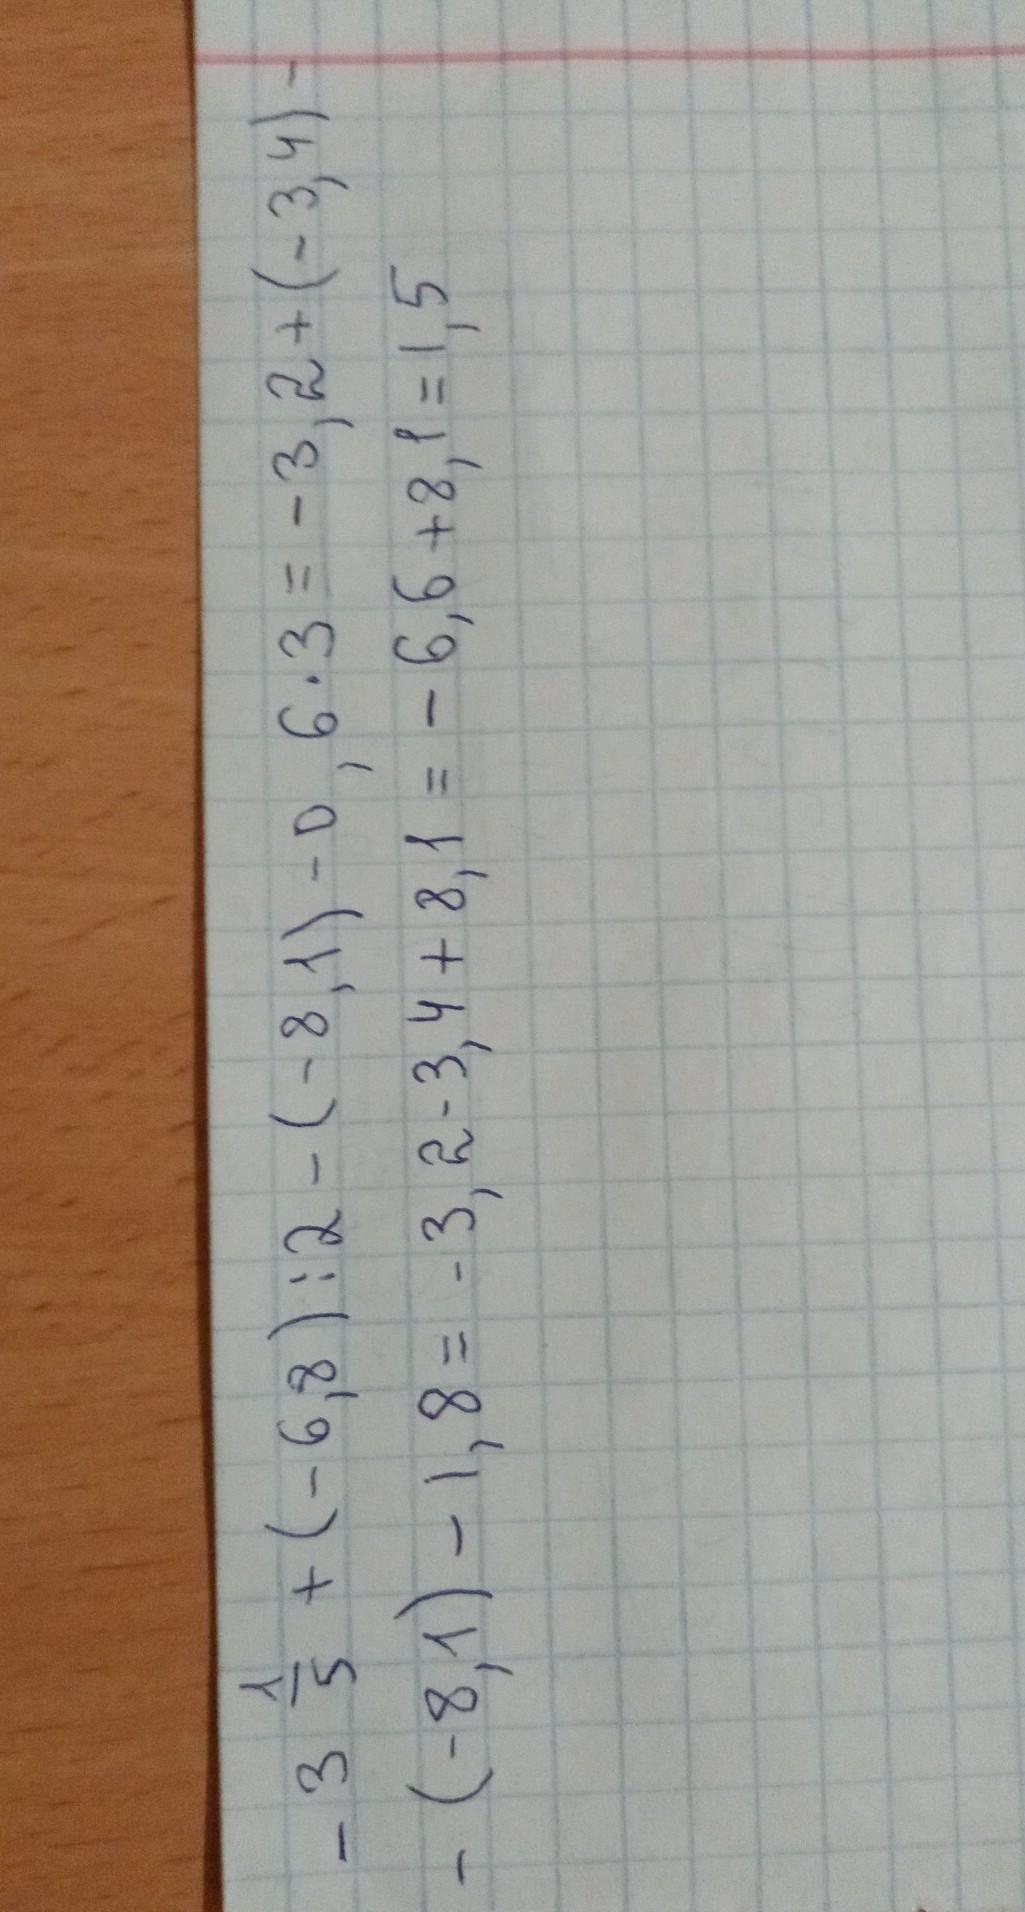 - 3 1/5 + (-6,8) : 2 - (-8,1) - 0,6 · 3 = -3,2 + (-3,4) -
- (-8,1) - 1,8 = -3,2 - 3,4 + 8,1 = -6,6 + 8,1 = 1,5